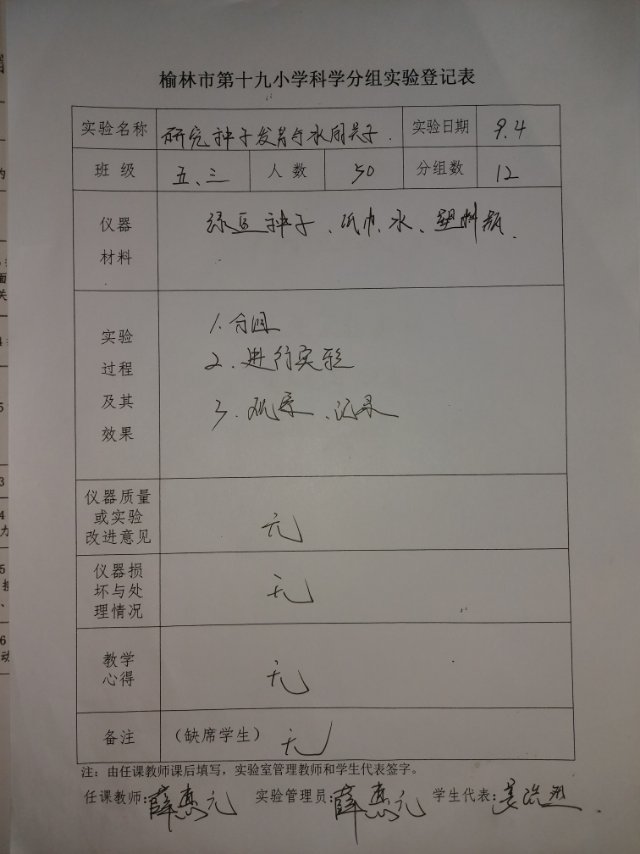 榆林市第十九小学科学分组实验登记表
实验名称 研究种子发芽与水的关系. 实验日期 9.4
班 级 五、三 人 数 50 分组数 12
仪器
材料
绿豆种子、纸巾、水、塑料瓶.
实验
过程
及其
效果
1.分组
2.进行实验
3.观察、记录
仪器质量
或实验
改进意见
无
仪器损
坏与处
理情况
无
教学
心得
无
备注 (缺席学生) 无
注：由任课教师课后填写，实验室管理教师和学生代表签字。
任课教师: 薛惠元 实验管理员: 薛惠元 学生代表: